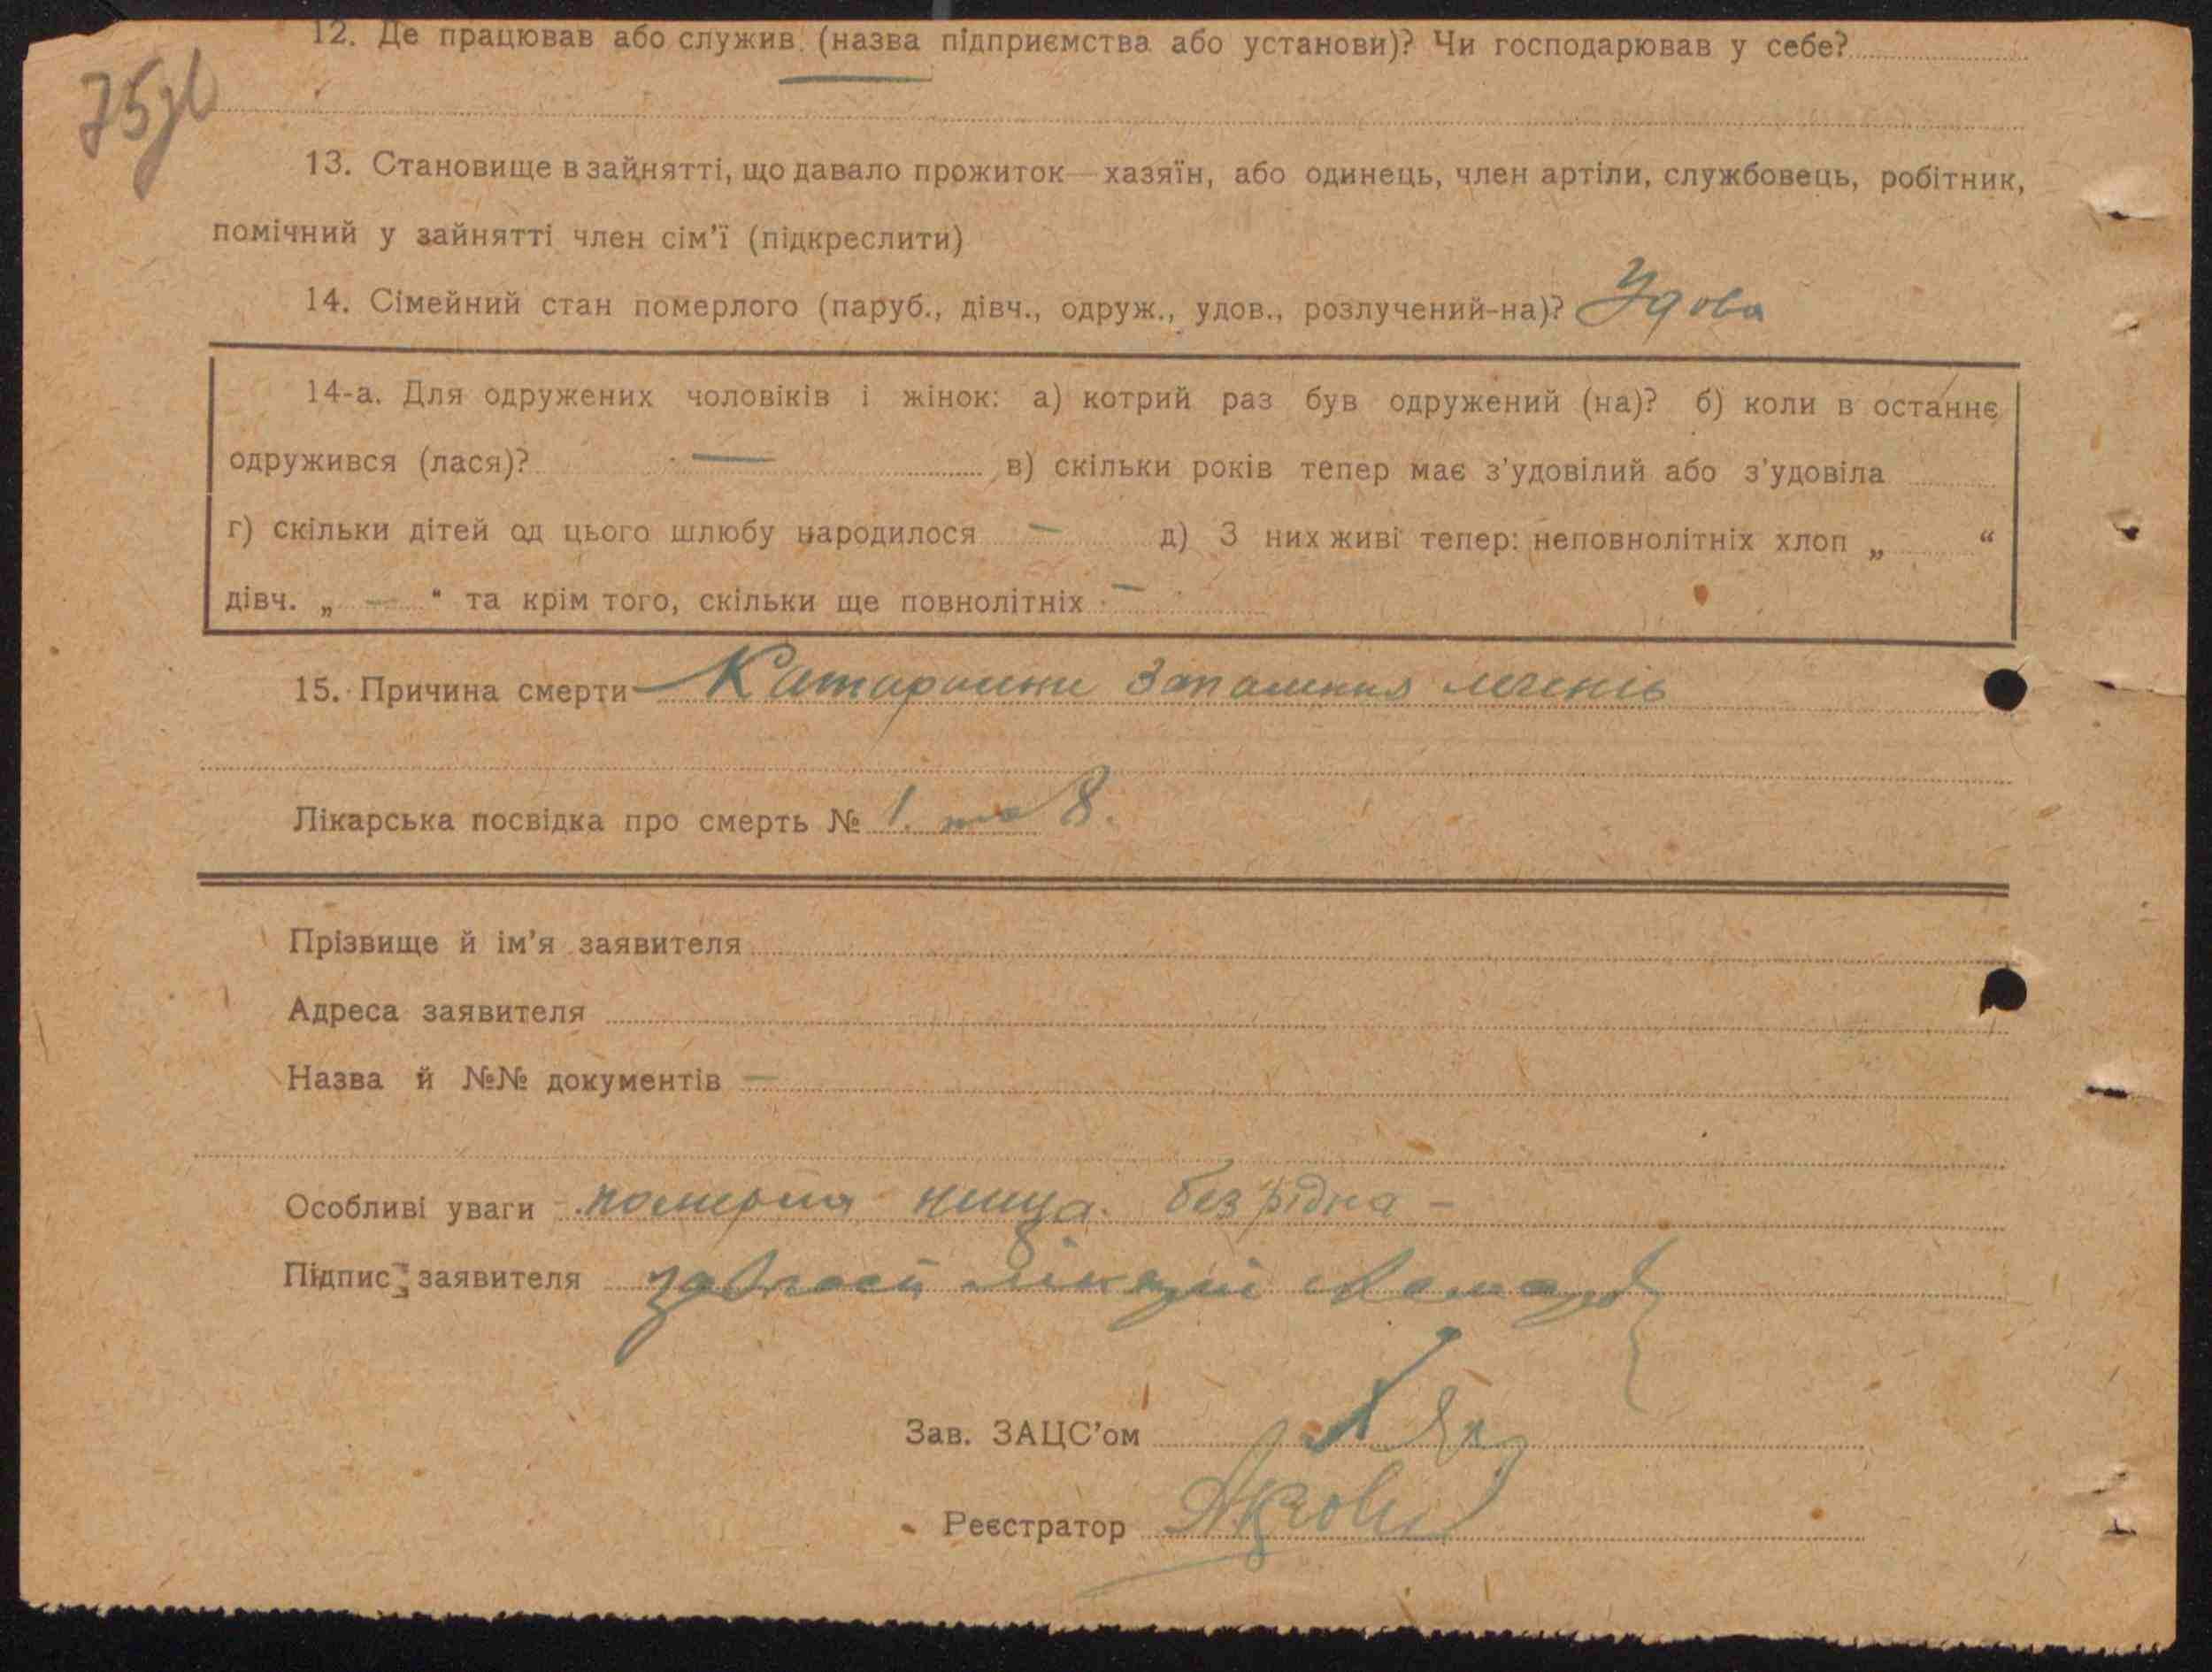 75зв
12. Де працював або служив. (назва підприємства або установи)? Чи господарював у себе?
13. Становище в зайнятті, що давало прожиток — хазяїн, або одинець, член артіли, службовець, робітник,
помічний у зайнятті член сім'ї (підкреслити)
14. Сімейний стан померлого (паруб., дівч., одруж., удов., розлучений-на)? Удова
14-а. Для одружених чоловіків і жінок: а) котрий раз був одружений (на)? б) коли в останнє
одружився (лася)? — в) скільки років тепер має з'удовілий або з'удовіла
г) скільки дітей од цього шлюбу народилося — д) З них живі тепер: неповнолітніх хлоп „ “
дівч. „ — “ та крім того, скільки ще повнолітніх —
15. Причина смерти Катаральне Запалення легень
Лікарська посвідка про смерть № 1. 8.
Прізвище й ім'я заявителя
Адреса заявителя
Назва й №№ документів —
Особливі уваги померла нища безрідна –
Підпис заявителя
Зав. ЗАЦС'ом
Реєстратор